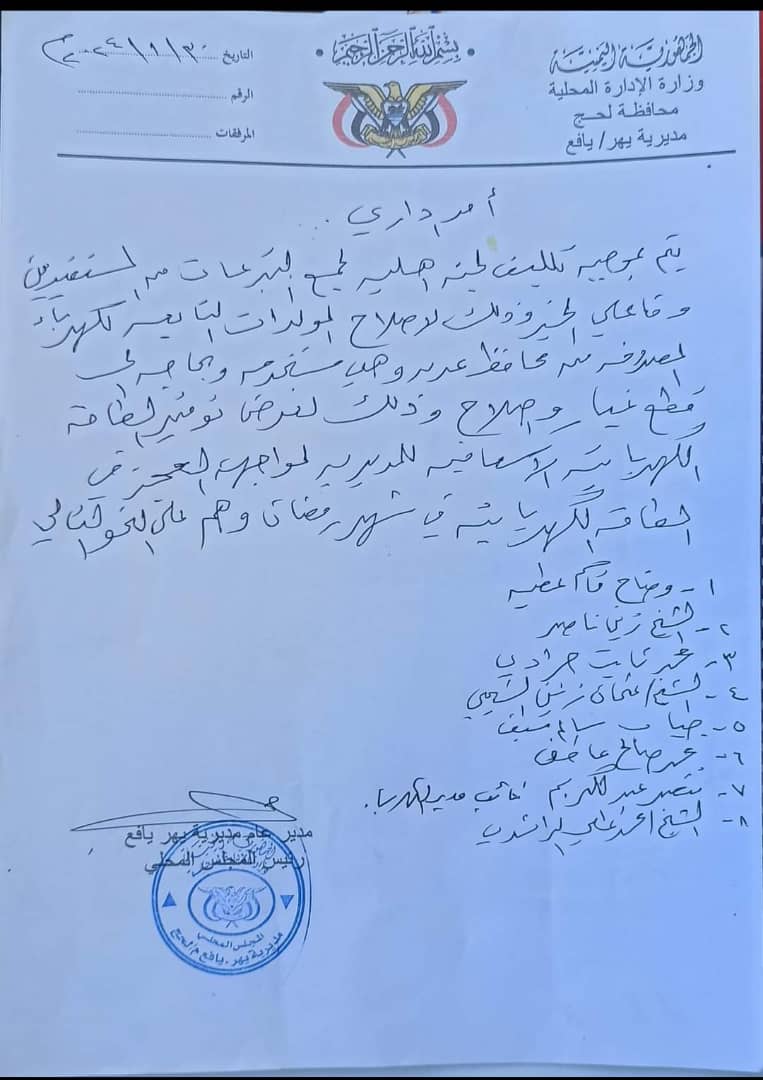 بسم الله الرحمن الرحيم
الجمهورية اليمنية
وزارة الإدارة المحلية
محافظة لحج
مديرية يهر / يافع
التاريخ ٣٠/١/٢٠٢٤م
الرقم
المرفقات
أمر اداري ...
يتم بموجبه تكليف لجنه اهليه لجمع التبرعات من المستفيدين
وفاعلي الخير وذلك لاصلاح المولدات التابعه لكهرباء
المصروفه من محافظ عدن وهي مستخدمه وبحاجه الى
قطع غيار واصلاح وذلك لغرض توفير الطاقه
الكهربائيه الاسعافيه للمديريه لمواجهة العجز في
الطاقه الكهربائيه في شهر رمضان وهم على النحو التالي
١- وضاح قاسم عطيه
٢- الشيخ زين ناصر
٣- محمد ثابت حرادي
٤- الشيخ / عثمان زين الشعيبي
٥- سالم سيف
٦- محمد صالح عاطف
٧- منتصر عبدالكريم نائب مدير الكهرباء.
٨- الشيخ احمد علي الراشدي
مدير عام مديرية يهر يافع
رئيس المجلس المحلي
المجلس المحلي
مديرية يهر - يافع م/لحج